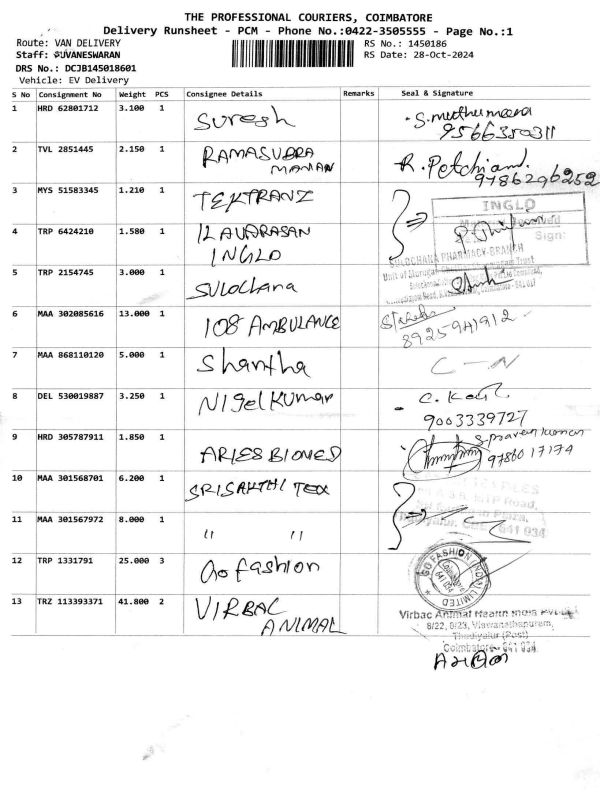 THE PROFESSIONAL COURIERS, COIMBATORE
Delivery Runsheet - PCM - Phone No.:0422-3505555 - Page No.:1
Route: VAN DELIVERY RS No.: 1450186
Staff: BUVANESWARAN RS Date: 28-Oct-2024
DRS No.: DCJB145018601
Vehicle: EV Delivery
S No Consignment No Weight PCS Consignee Details Remarks Seal & Signature
1 HRD 62801712 3.100 1 Suresh S. muthumeena
9566350311
2 TVL 2851445 2.150 1 RAMASUBRA R. Petchiand.
MANIAN 9786296252
3 MYS 51583345 1.210 1 TEKTRANZ
INGLO
4 TRP 6424210 1.580 1 ILAVARASAN Sign:
INGLO SULOCHANA PHARMACY-BRANCH
5 TRP 2154745 3.000 1 Sulochana
6 MAA 302085616 13.000 1 108 AMBULANCE
8925941912
7 MAA 868110120 5.000 1 Shantha C-N
8 DEL 530019887 3.250 1 Nigel Kumar
9003339727
9 HRD 305787911 1.850 1 ARIES BIOMED S. praveen kumar
97860 17174
10 MAA 301568701 6.200 1 SRISAKTHI TEX
MTP Road,
11 MAA 301567972 8.000 1 " "
641 034
12 TRP 1331791 25.000 3 Go fashion GO FASHION (INDIA) LIMITED
13 TRZ 113393371 41.800 2 VIRBAC Virbac Animal Health India
ANIMAL 8/22, 8/23, Viswanathapuram,
Thudiyalur (Post)
Coimbatore - 641 034